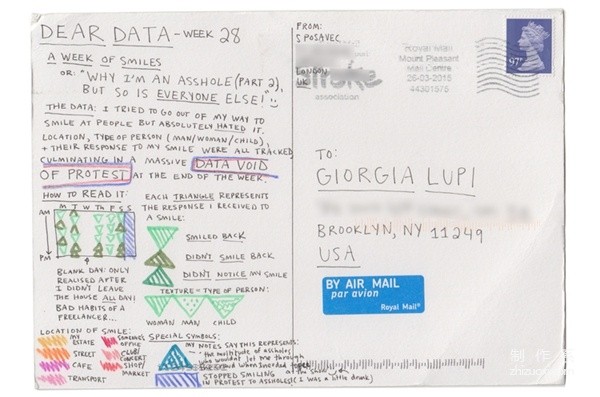 DEAR DATA - WEEK 28
A WEEK OF SMILES
OR: "WHY I'M AN ASSHOLE (PART 2),
BUT SO IS EVERYONE ELSE!"
THE DATA: I TRIED TO GO OUT OF MY WAY TO
SMILE AT PEOPLE BUT ABSOLUTELY HATED IT.
LOCATION, TYPE OF PERSON (MAN/WOMAN/CHILD),
+ THEIR RESPONSE TO MY SMILE WERE ALL TRACKED
CULMINATING IN A MASSIVE DATA VOID
OF PROTEST AT THE END OF THE WEEK.
HOW TO READ IT:
M T W Th F S S
AM
PM
BLANK DAY: ONLY
REALISED AFTER
I DIDN'T LEAVE
THE HOUSE ALL DAY!
BAD HABITS OF A
FREELANCER...
EACH TRIANGLE REPRESENTS
THE RESPONSE I RECEIVED TO
A SMILE:
SMILED BACK
DIDN'T SMILE BACK
DIDN'T NOTICE MY SMILE
TEXTURE = TYPE OF PERSON:
WOMAN MAN CHILD
LOCATION OF SMILE:
MY ESTATE
STREET
CAFE
TRANSPORT
SOMEONE'S OFFICE
CLUB/
CONCERT
SHOP/
MARKET
SPECIAL SYMBOLS:
MY NOTES SAY THIS REPRESENTS:
"the multitude of assholes
who wouldn't let me through
the crowd when I needed to pee
at the show"
STOPPED SMILING
IN PROTEST TO ASSHOLES (I was a little drunk)
FROM:
S POSAVEC
LONDON
UK
association
Royal Mail
Mount Pleasant
Mail Centre
26-03-2015
44301575
97P
TO:
GIORGIA LUPI
BROOKLYN, NY 11249
USA
BY AIR MAIL
par avion
Royal Mail®